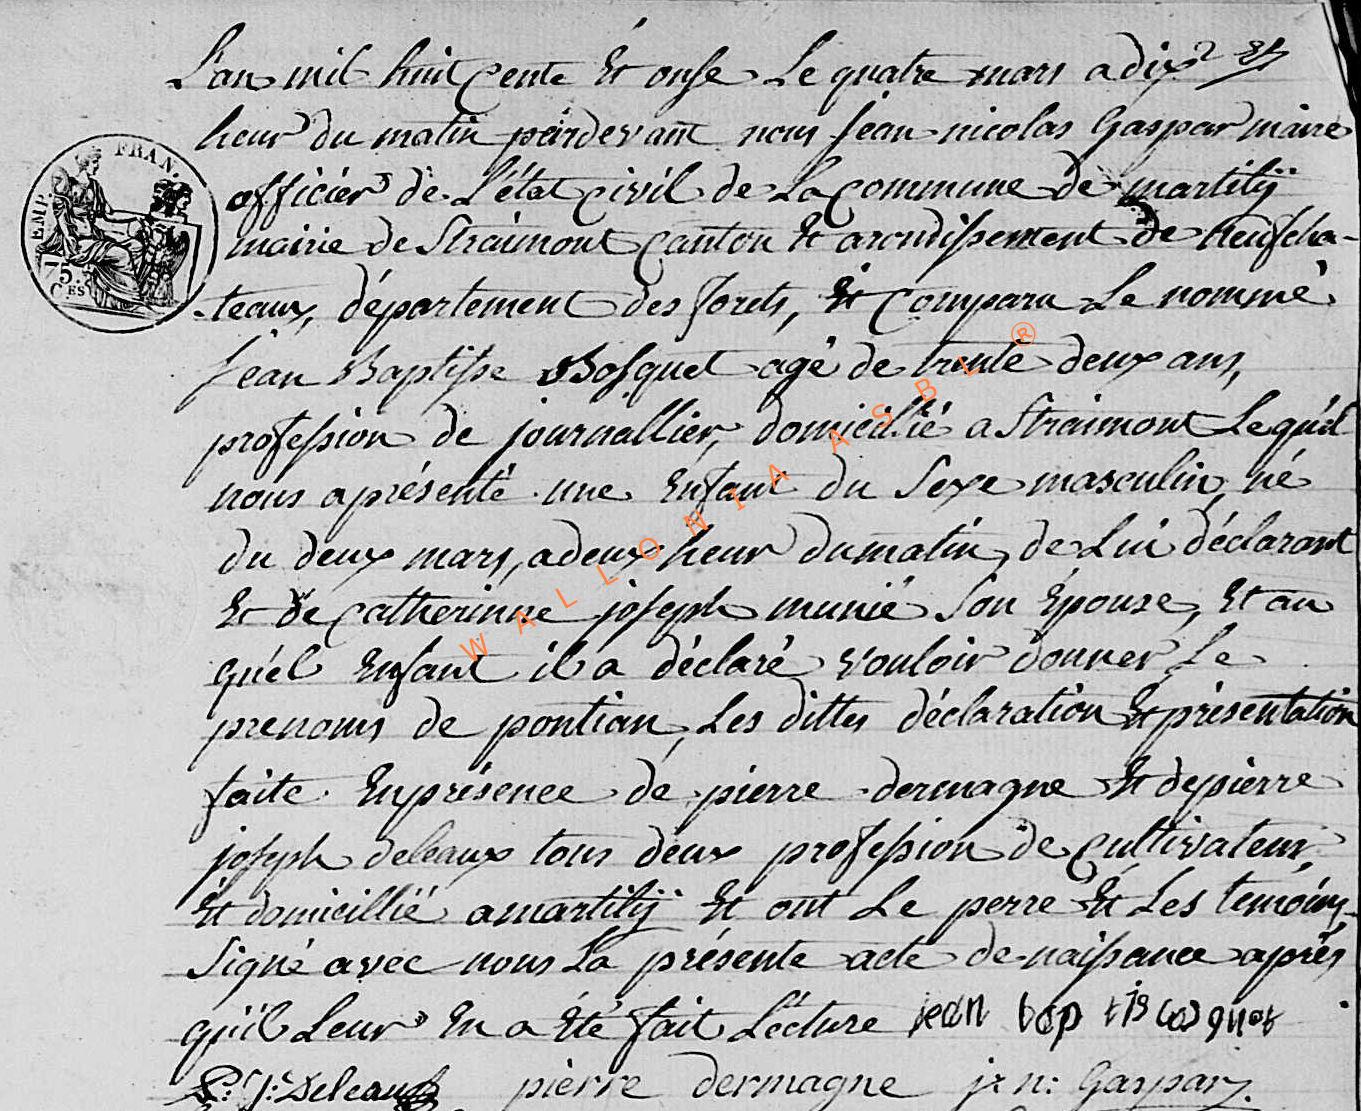 L'an mil huit cente Et onse Le quatre mars a dix
heur du matin pardevant nous jean nicolas Gaspar maire
officier de L'état civil de La commune de martilÿ
EMP. FRAN.
75
CES
mairie de Straimont canton Et arondissement de neufcha-
-teaux, département des forets, Et Comparu Le nommé
jean Baptisse Bosquet agé de trente deux ans,
profession de journallier, domicillié a Straimont Lequél
nous aprésenté une Enfant du Sexe masculin, né
du deux mars, a deux heur du matin, de Lui déclarant
Et de catherinne joseph munié Son Épouse, Et au
quél Enfant il a déclaré vouloir donner Le
prenoms de pontian, Les dittes déclaration Et présentation
faite En présence de pierre dermagne Et de pierre
joseph deleaux tous deux profession de cultivateur,
Et domicillié a martilÿ Et ont Le perre Et Les temóins
Signé avec nous La présente acte de naissance aprés
qu'il Leur En a Été fait Lécture jean bap tis
P: J: Deleau pierre dermagne j: n: Gaspar
WALLONIA ASBL ®